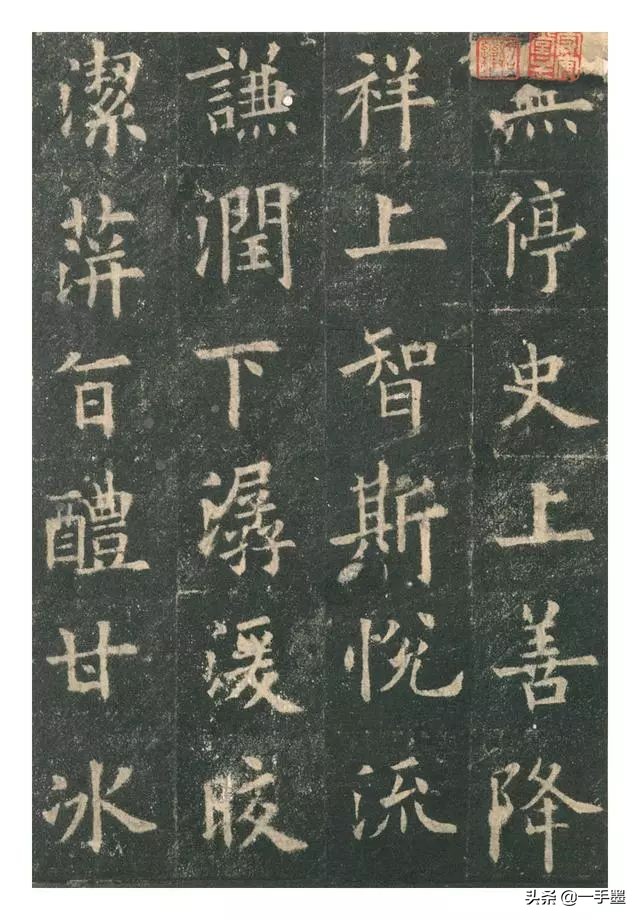 無停史上善降
祥上智斯悅流
謙潤下潺湲晈
潔蓱旨醴甘冰
头条 @一手墨